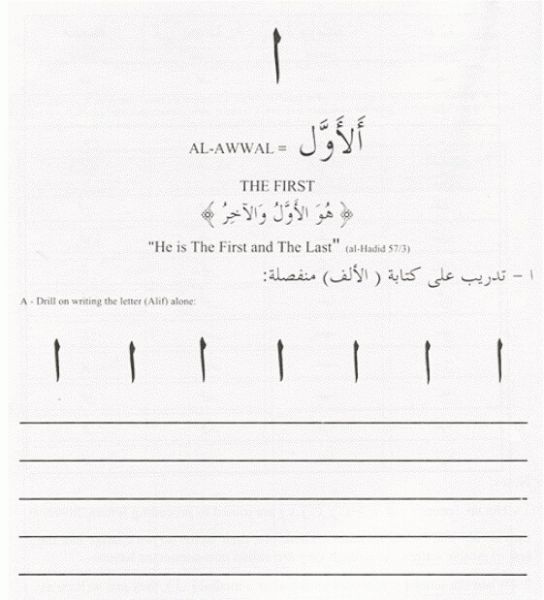 ا
AL-AWWAL = أَلأَوَّل
THE FIRST
﴿ هُوَ الأَوَّلُ وَالآخِرُ ﴾
"He is The First and The Last" (al-Hadid 57/3)
١ - تدريب على كتابة ( الألف) منفصلة:
A - Drill on writing the letter (Alif) alone:
ا ا ا ا ا ا ا